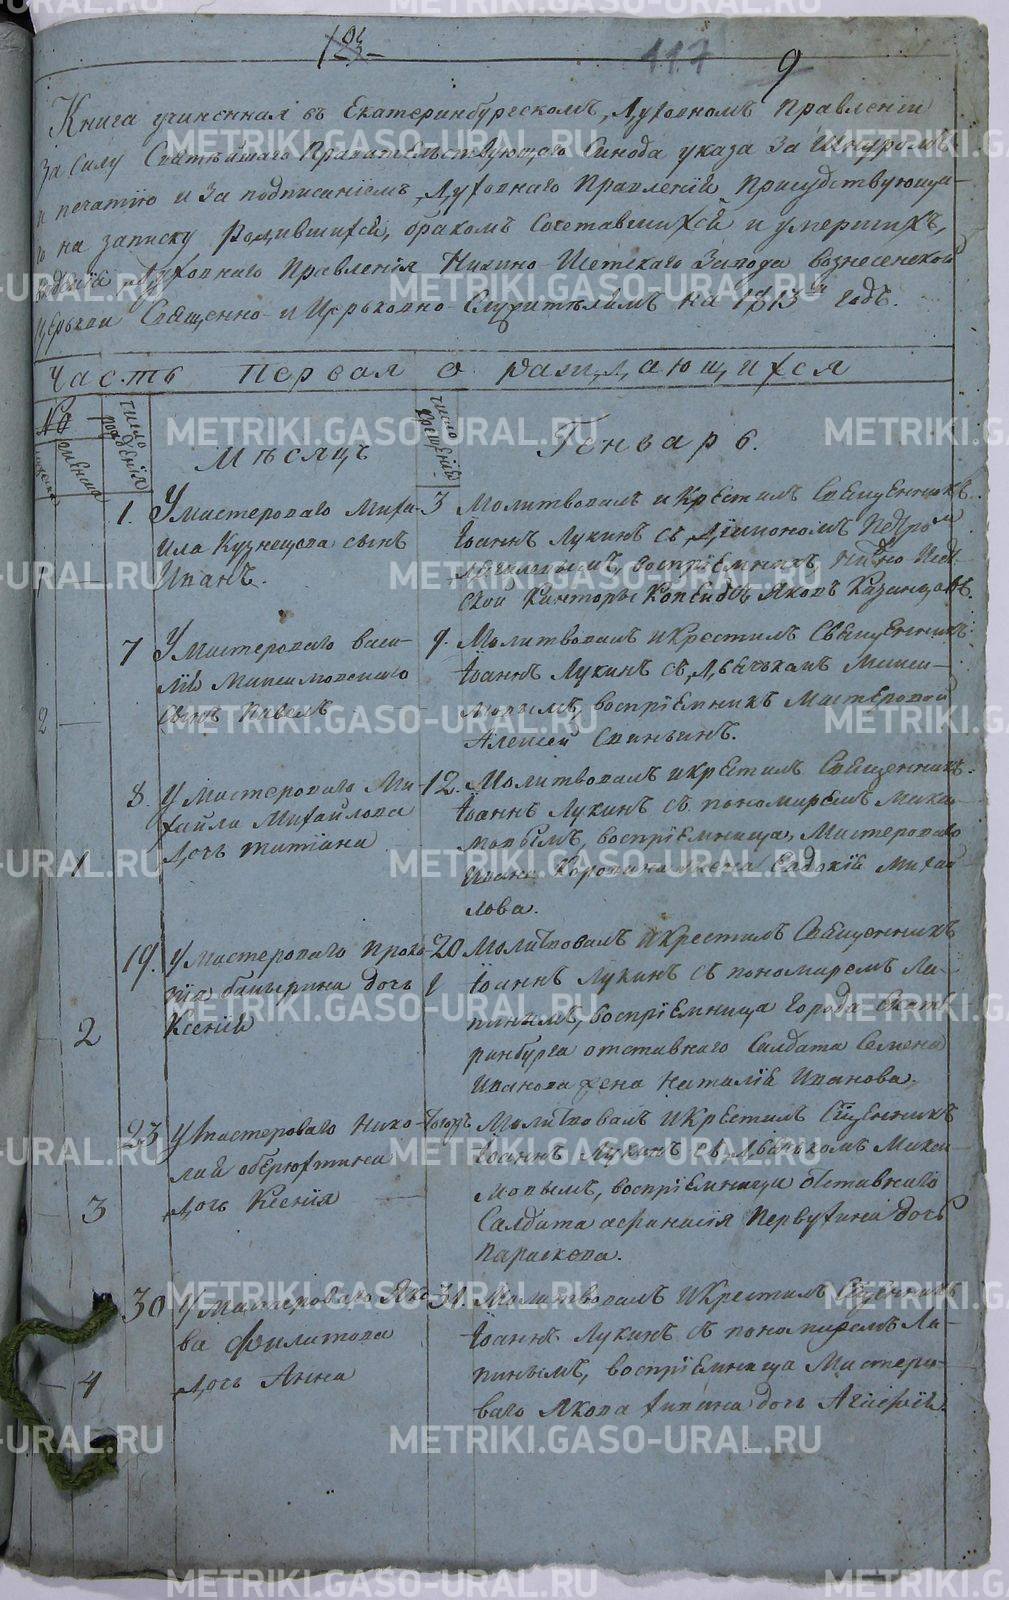 117
9
Книга учиненная въ Екатеринбургскомъ Духовномъ Правленіи
За силу Святѣйшаго Правительствующаго Синода указа За Шнуромъ
и печатію и За подписаніемъ Духовнаго Правленія Присудствующа-
го на записку родившихся, бракомъ Сочетавшихся и умершихъ,
Духовнаго Правленія Нижно-Исетскаго Завода вознесенской
церькви Священно- и Церьковно-Служителямъ на 1813й годъ.
Часть Первая о раждающихся
№
число рожденія
Мѣсяцъ
число крещенія
Генварь.
мужеска
женска
1.
У мастероваго Миха-
ила Кузнецова сынъ
Иванъ.
3
Молитвовалъ и Крестилъ Священникъ
Іоаннъ Лукинъ съ Діакономъ Петромъ
воспріемникъ, Исет-
ской Канторы Яковъ Казанцовъ.
2
7
У Мастероваго Васи-
лія Максимовскаго
сынъ Павелъ
9.
Молитвовалъ и крестилъ Священникъ
Іоаннъ Лукинъ съ Дьячькомъ Макси-
мовымъ, воспріемникъ Мастеровой
Алексей Свиньинъ.
1
8.
У Мастероваго Ми-
хайла Михайлова
Дочь татіана
12.
Молитвовалъ и крестилъ Священникъ
Іоаннъ Лукинъ съ пономаремъ
воспріемница, Мастероваго
Ивана жена Евдокія Михай
лова.
2
19.
У мастероваго Проко-
пія дочь
Ксенія
20
Молитвовалъ и Крестилъ Священникъ
Іоаннъ Лукинъ съ пономаремъ Ла-
пинымъ, воспріемница города Екате-
ринбурга отставнаго Салдата Семена
Иванова жена Наталія Иванова.
3
23
У мастероваго Нико-
лая оберюхтина
Дочь Ксенія
тогожъ
Молитвовалъ и Крестилъ Священникъ
Іоаннъ Лукинъ съ Дьячькомъ Макси-
мовымъ, воспріемница отставнаго
Салдата афанасія Первухина дочь
Параскова.
4
30
У мастероваго Яко-
ва Филатова
Дочь Анна
31.
Молитвовалъ и Крестилъ Священникъ
Іоаннъ Лукинъ съ пономаремъ Ла-
пинымъ, воспріемница Мастеро-
ваго Якова дочь
METRIKI.GASO-URAL.RU